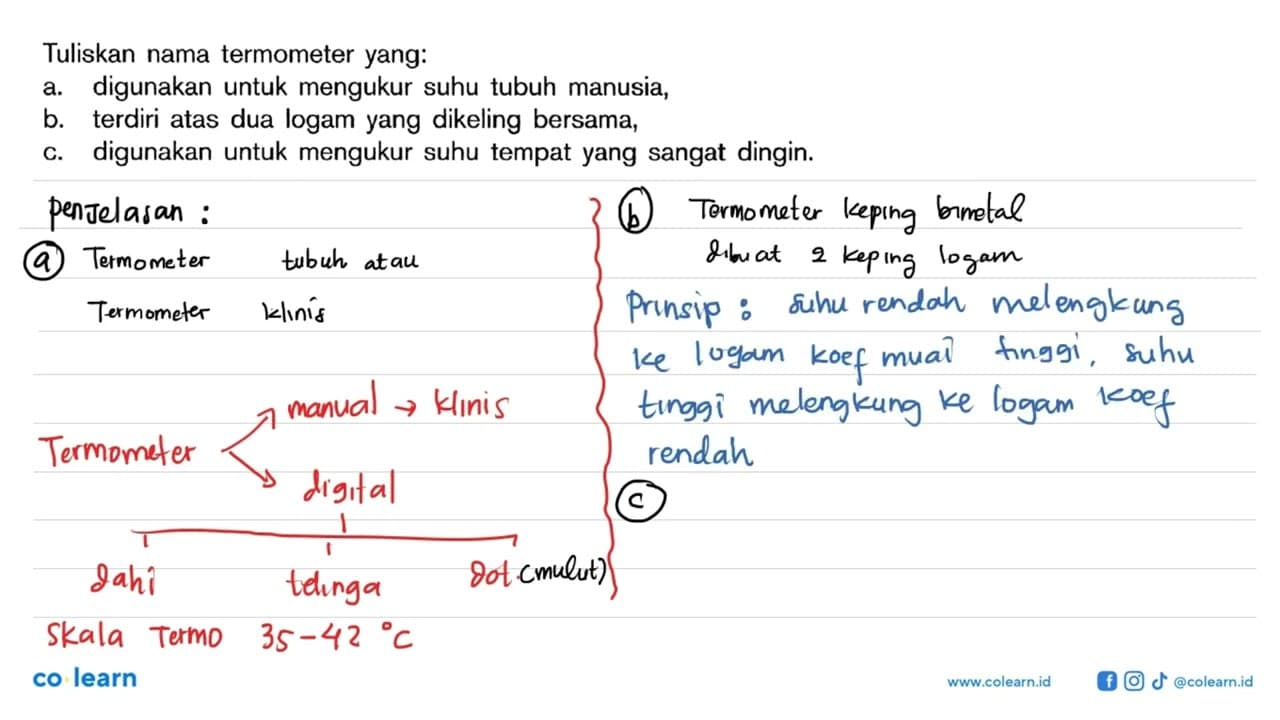 Tuliskan nama termometer yang:
a. digunakan untuk mengukur suhu tubuh manusia,
b. terdiri atas dua logam yang dikeling bersama,
c. digunakan untuk mengukur suhu tempat yang sangat dingin.
Penjelasan :
a Termometer tubuh atau
Termometer klinis
Termometer
manual → klinis
digital
dahi telinga Dot (mulut)
Skala Termo 35-42 °C
b Termometer keping bimetal
dibuat 2 keping logam
Prinsip : suhu rendah melengkung
ke logam koef muai tinggi, suhu
tinggi melengkung ke logam koef
rendah
c
co learn
www.colearn.id @colearn.id